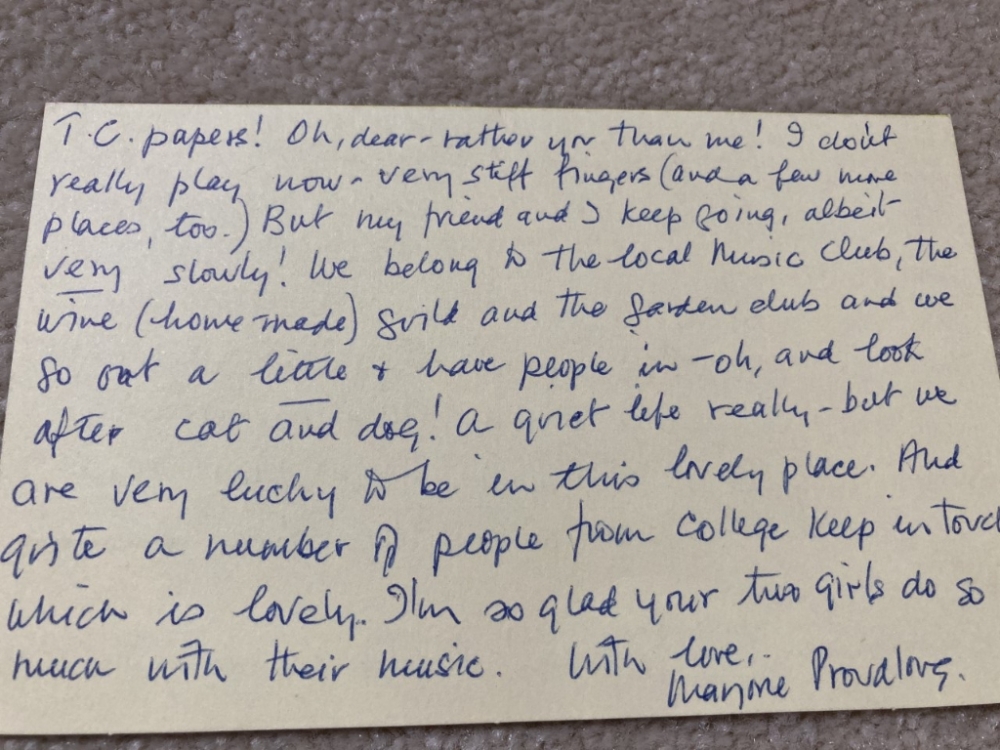 T.C. papers! Oh, dear - rather you than me! I don't
really play now - very stiff fingers (and a few more
places, too.) But my friend and I keep going, albeit
very slowly! We belong to the local Music Club, the
wine (home made) guild and the garden club and we
go out a little + have people in - oh, and look
after cat and dog! A quiet life really - but we
are very lucky to be in this lovely place. And
quite a number of people from College keep in touch
which is lovely. I'm so glad your two girls do so
much with their music. With love,
Marjorie Proudlove.